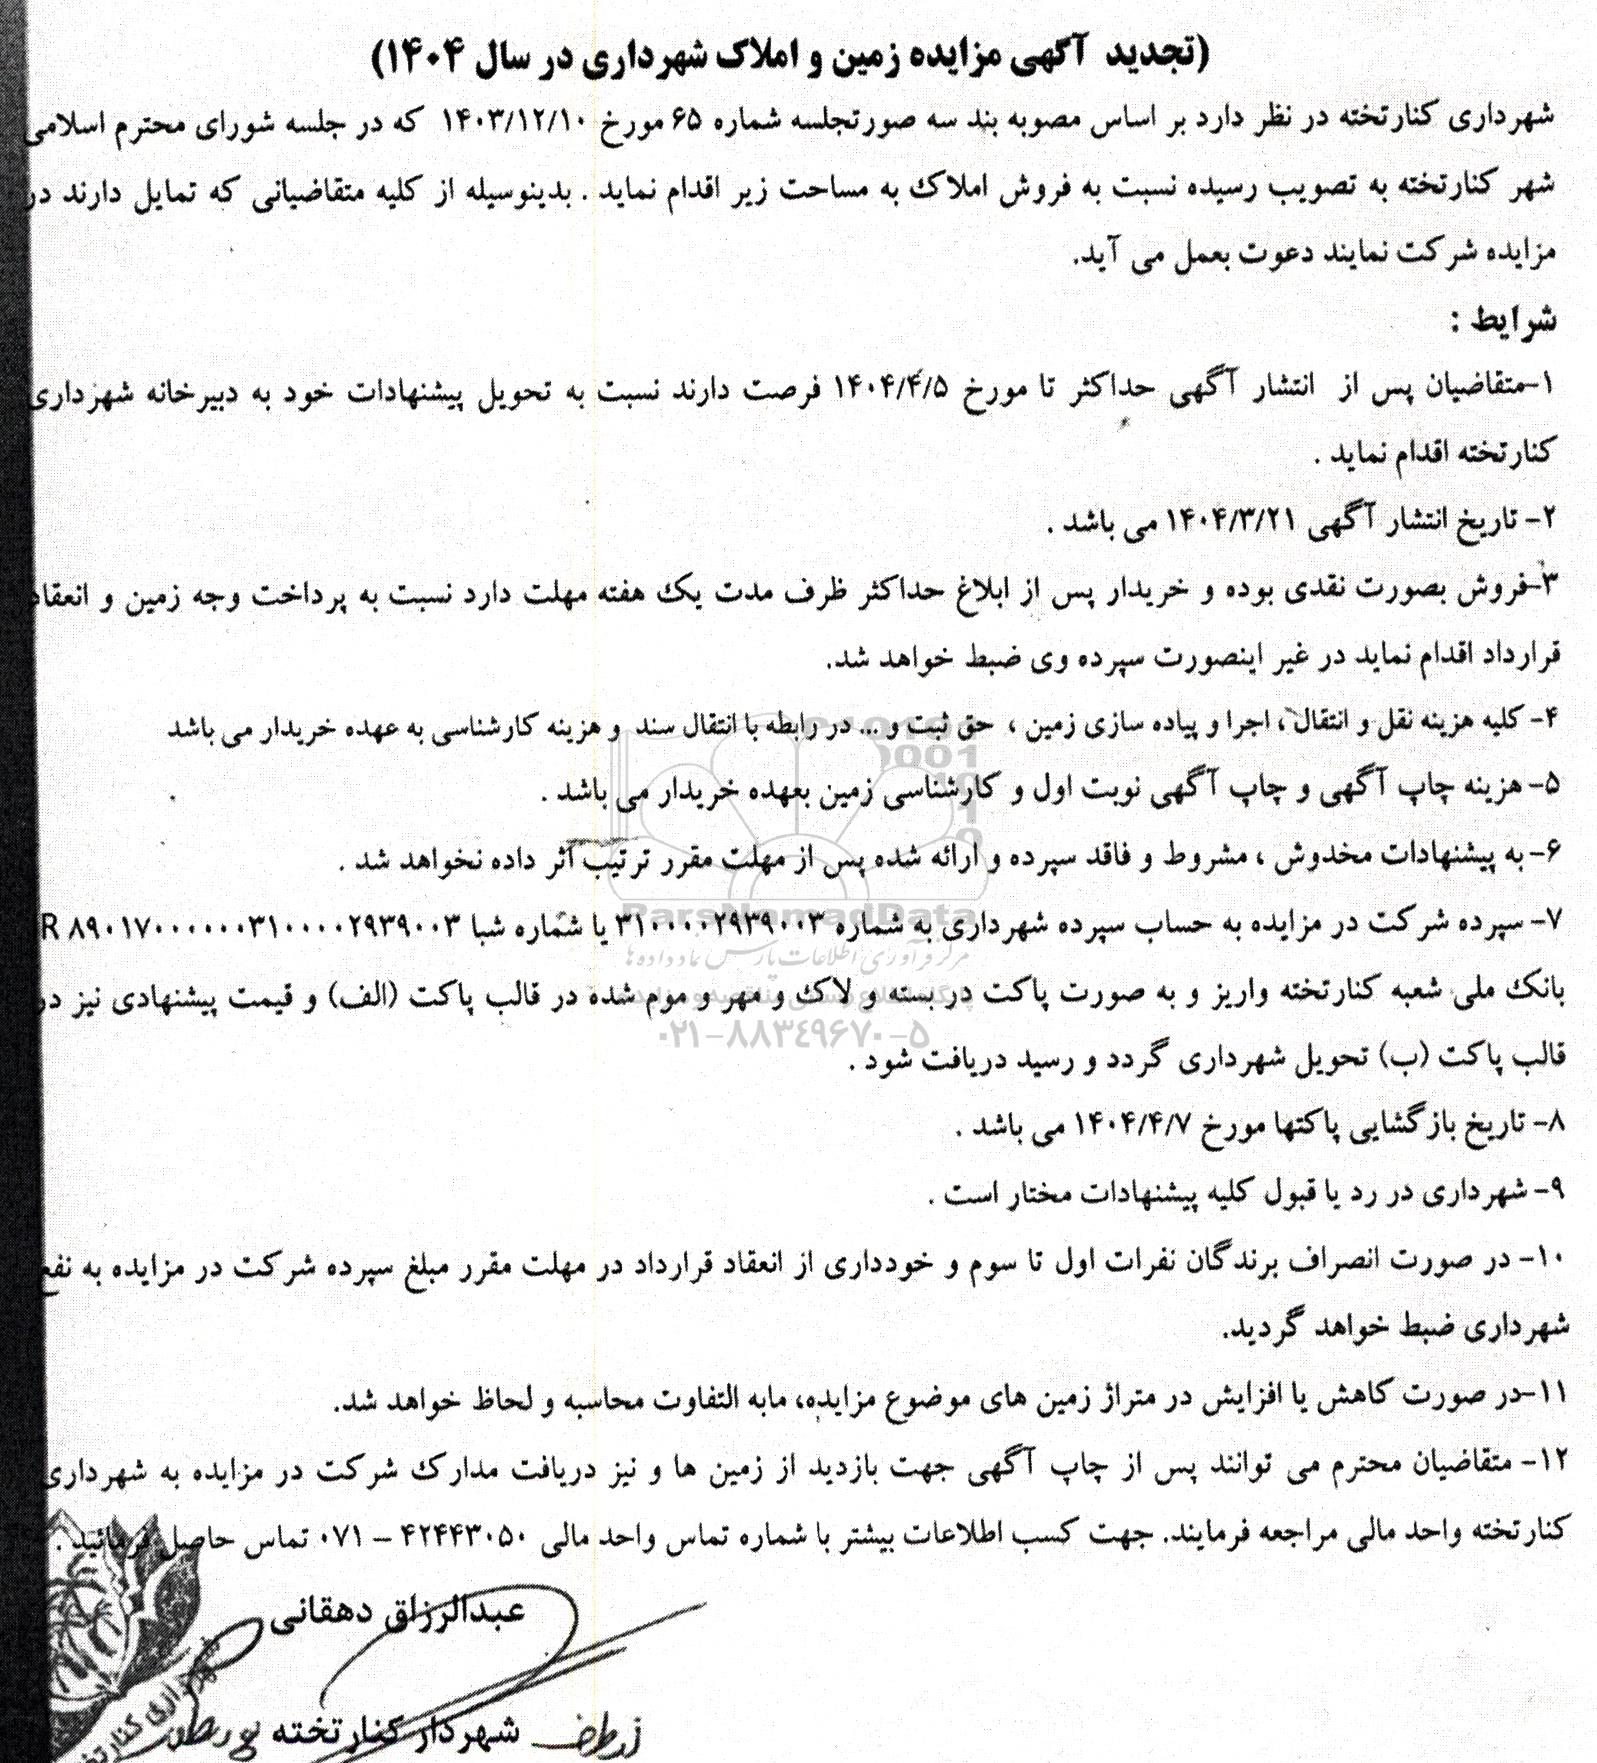 (تجدید آگهی مزایده زمین و املاک شهرداری در سال ۱۴۰۴)
شهرداری کنارتخته در نظر دارد بر اساس مصوبه بند سه صورتجلسه شماره ۶۵ مورخ ۱۴۰۳/۱۲/۱۰ که در جلسه شورای محترم اسلامی
شهر کنارتخته به تصویب رسیده نسبت به فروش املاک به مساحت زیر اقدام نماید . بدینوسیله از کلیه متقاضیانی که تمایل دارند در
مزایده شرکت نمایند دعوت بعمل می آید.
شرایط :
۱-متقاضیان پس از انتشار آگهی حداکثر تا مورخ ۱۴۰۴/۴/۵ فرصت دارند نسبت به تحویل پیشنهادات خود به دبیرخانه شهرداری
کنارتخته اقدام نماید .
۲- تاریخ انتشار آگهی ۱۴۰۴/۳/۲۱ می باشد .
۳-فروش بصورت نقدی بوده و خریدار پس از ابلاغ حداکثر ظرف مدت یک هفته مهلت دارد نسبت به پرداخت وجه زمین و انعقاد
قرارداد اقدام نماید در غیر اینصورت سپرده وی ضبط خواهد شد.
۴- کلیه هزینه نقل و انتقال ، اجرا و پیاده سازی زمین ، حق ثبت و ... در رابطه با انتقال سند و هزینه کارشناسی به عهده خریدار می باشد
۵- هزینه چاپ آگهی و چاپ آگهی نوبت اول و کارشناسی زمین بعهده خریدار می باشد .
۶- به پیشنهادات مخدوش ، مشروط و فاقد سپرده و ارائه شده پس از مهلت مقرر ترتیب آثر داده نخواهد شد .
۷- سپرده شرکت در مزایده به حساب سپرده شهرداری به شماره ۳۱۰۰۰۰۲۹۳۹۰۰۳ یا شماره شبا R ۸۹۰۱۷۰۰۰۰۰۰۰۳۱۰۰۰۰۲۹۳۹۰۰۳
بانک ملی شعبه کنارتخته واریز و به صورت پاکت در بسته و لاک و مهر و موم شده در قالب پاکت (الف) و قیمت پیشنهادی نیز در
قالب پاکت (ب) تحویل شهرداری گردد و رسید دریافت شود .
۸- تاریخ بازگشایی پاکتها مورخ ۱۴۰۴/۴/۷ می باشد .
۹- شهرداری در رد یا قبول کلیه پیشنهادات مختار است .
۱۰- در صورت انصراف برندگان نفرات اول تا سوم و خودداری از انعقاد قرارداد در مهلت مقرر مبلغ سپرده شرکت در مزایده به نفع
شهرداری ضبط خواهد گردید.
۱۱-در صورت کاهش یا افزایش در متراژ زمین های موضوع مزایده، مابه التفاوت محاسبه و لحاظ خواهد شد.
۱۲- متقاضیان محترم می توانند پس از چاپ آگهی جهت بازدید از زمین ها و نیز دریافت مدارک شرکت در مزایده به شهرداری
کنارتخته واحد مالی مراجعه فرمایند. جهت کسب اطلاعات بیشتر با شماره تماس واحد مالی ۴۲۴۴۳۰۵۰ – ۰۷۱ تماس حاصل فرمائید .
عبدالرزاق دهقانی
شهردار کنارتخته
ParsNamadData
مرکز فرآوری اطلاعات پارس نماد داده ها
۰۲۱-۸۸۳۴۹۶۷۰-۵